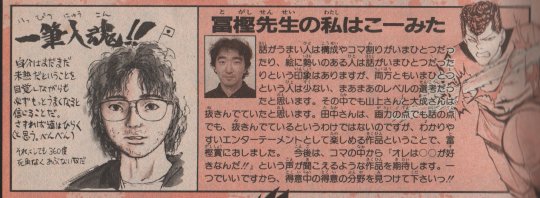 一筆入魂!!
いっぴつにゅうこん
自分はまだまだ
未熟だということを
自覚しながらも
必ずもっとうまくなると
信じることだ。
さすれば道はひらく
(と思う、べんべん)
冨樫先生の私はこーみた
とがしせんせい わたし
話がうまい人は構成やコマ割りがいまひとつだっ
たり、絵に勢いのある人は話がいまひとつだった
りという印象はありますが、両方ともいまひとつ
という人は少ない、まあまあのレベルの選考だっ
たと思います。その中でも山上さんと大成さんは
抜きんでていたと思います。田中さんは、画力の点でも話の点
でも、抜きんでているというわけではないのですが、わかりや
すいエンターテーメントとして楽しめる作品ということで、冨
樫賞におしました。今後は、コマの中から「オレは○○が好
きなんだ!!」という声が聞こえるような作品を期待します。一
つでいいですから、得意中の得意の分野を見つけて下さいっ!!